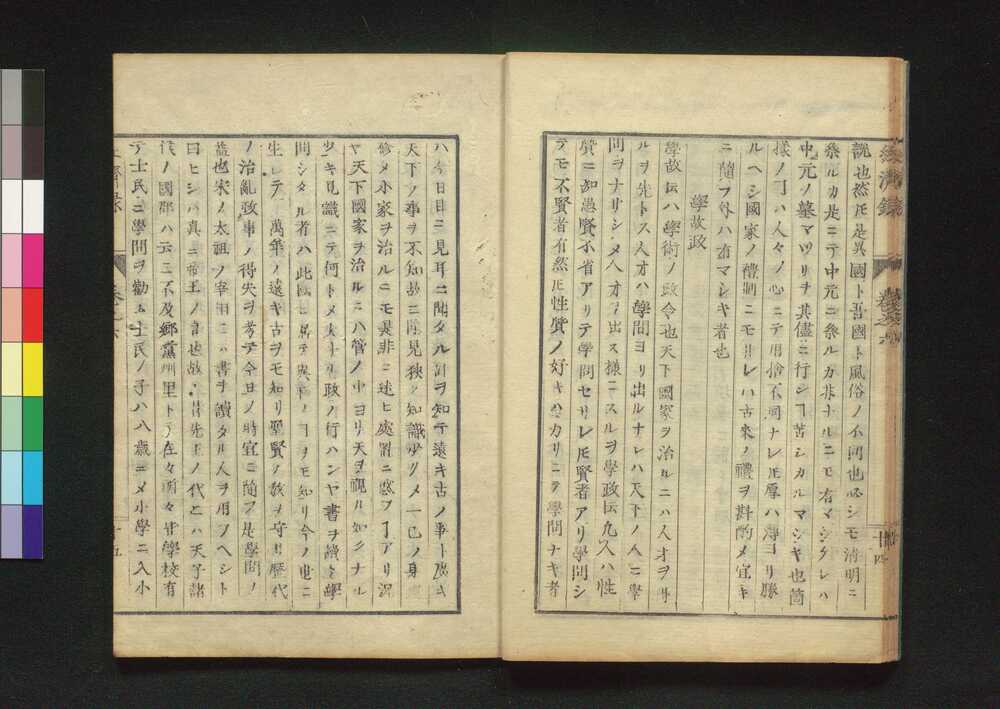 說也然𪜈是異國ト吾國ト風俗ノ不同也必シモ清明ニ
祭ルカ是ニテ中元ニ祭ルカ非ナルニモ有マシタレハ
中元ノ墓マツリヲ其儘ニ行シヿ苦シカルマシキ也箇
樣ノヿハ人々ノ心ニテ用捨不同ナレ𪜈厚ハ薄ヨリ勝
ルヘシ國家ノ禮制ニモ
ハ古來ノ禮ヲ斟酌メ宜キ
ニ隨フ外ハ有マシキ者也
學故政
學故伝ハ學術ノ政令也天下國家ヲ治ルニハ人才ヲ
ルヲ先トス人才ハ學問ヨリ出ルナレハ天下ノ人ニ學
問ヲナサシメ人才ヲ出ス樣ニスルヲ學政伝凡人ハ性
質ニ如愚賢不省アリテ学問セサレ𪜈賢者アリ學問シ
テモ不賢者有然𪜈性質ノ好キ
カリニテ學問ナキ者
ハ今日目ニ見耳ニ聞タル計ヲ知テ遠キ古ノ事
天下ノ事ヲ不知故ニ
見狹ク知識少クメ一己ノ身
修メ小家ヲ治ルニモ是非ニ迷ヒ處置ニ惑フヿアリ況
ヤ天下國家ヲ治ルニハ管ノ中ヨリ天ヲ覗ル如クナル
少キ見識ニテ何トメ
政ノ行ハンヤ書ヲ讀ミ學
問シタル者ハ此國ニ居テ
ノヿヲモ知リ今ノ世ニ
生レテ
萬年ノ遠キ古ヲモ知リ聖賢ノ教ヲ守リ歷代
ノ治亂政事ノ得失ヲ考テ今日ノ時宜ニ隨フ是學問ノ
益也宋ノ太祖ノ宰相ニハ書ヲ讀タル人ヲ用フヘシト
曰ヒシハ真ニ帝王ノ言也故ニ昔先王ノ代ニハ天子諸
侯ノ國都ハ云ニ不及鄕黨州里トテ在々所々ニ學校有
テ士民ニ學問ヲ勸ム士民ノ子ハ八歲ニメ小學ニ入小